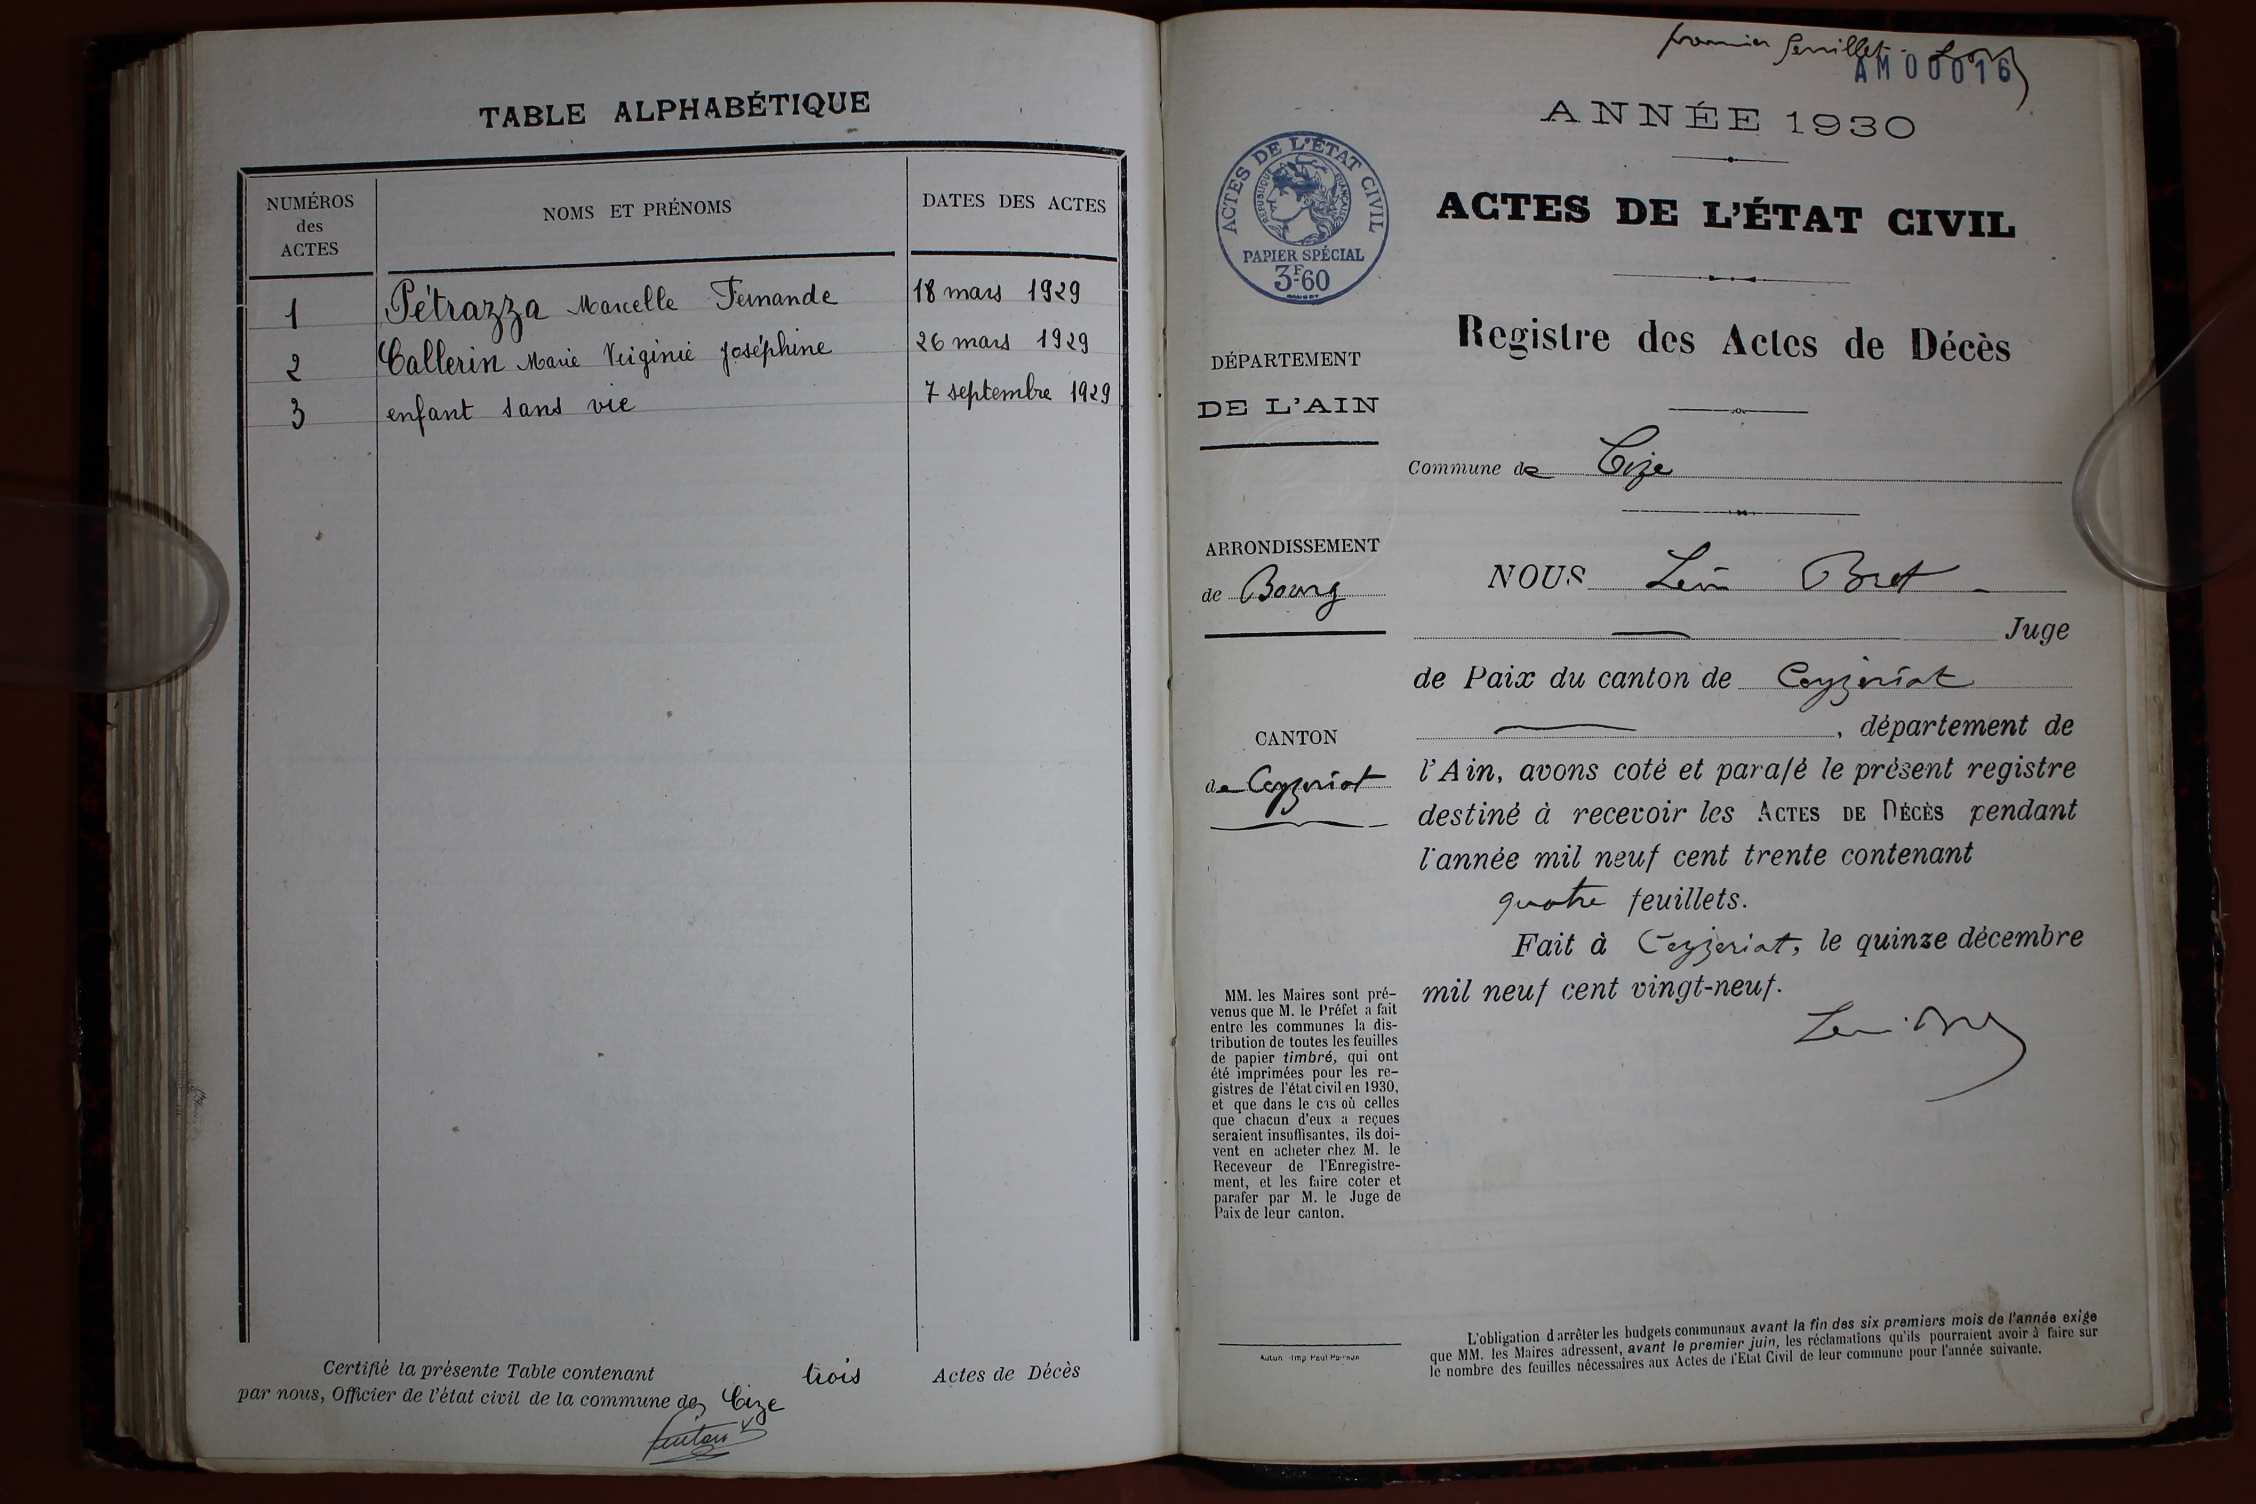 TABLE ALPHABÉTIQUE
NUMÉROS
des
ACTES
NOMS ET PRÉNOMS
DATES DES ACTES
1 Pétrazza Marcelle Fernande 18 mars 1929
2 Callerin Marie Virginie Joséphine 26 mars 1929
3 enfant sans vie 7 septembre 1929
Certifié la présente Table contenant trois Actes de Décès
par nous, Officier de l'état civil de la commune de Cize
premier feuillet
AM00016
ANNÉE 1930
ACTES DE L'ÉTAT CIVIL
RÉPUBLIQUE FRANÇAISE
PAPIER SPÉCIAL
3F-60
ACTES DE L'ÉTAT CIVIL
Registre des Actes de Décès
DÉPARTEMENT
DE L'AIN
Commune de Cize
ARRONDISSEMENT
de Bourg
NOUS Léon Bret
Juge
de Paix du canton de Ceyzériat
, département de
CANTON
de Ceyzériat
l'Ain, avons coté et parafé le présent registre
destiné à recevoir les ACTES DE DÉCÈS pendant
l'année mil neuf cent trente contenant
quatre feuillets.
Fait à Ceyzeriat, le quinze décembre
mil neuf cent vingt-neuf.
MM. les Maires sont pré-
venus que M. le Préfet a fait
entre les communes la dis-
tribution de toutes les feuilles
de papier timbré, qui ont
été imprimées pour les re-
gistres de l'état civil en 1930,
et que dans le cas où celles
que chacun d'eux a reçues
seraient insuffisantes, ils doi-
vent en acheter chez M. le
Receveur de l'Enregistre-
ment, et les faire coter et
parafer par M. le Juge de
Paix de leur canton.
Autun Imp Paul
L'obligation d'arrêter les budgets communaux avant la fin des six premiers mois de l'année exige
que MM. les Maires adressent, avant le premier juin, les réclamations qu'ils pourraient avoir à faire sur
le nombre des feuilles nécessaires aux Actes de l'Etat Civil de leur commune pour l'année suivante.